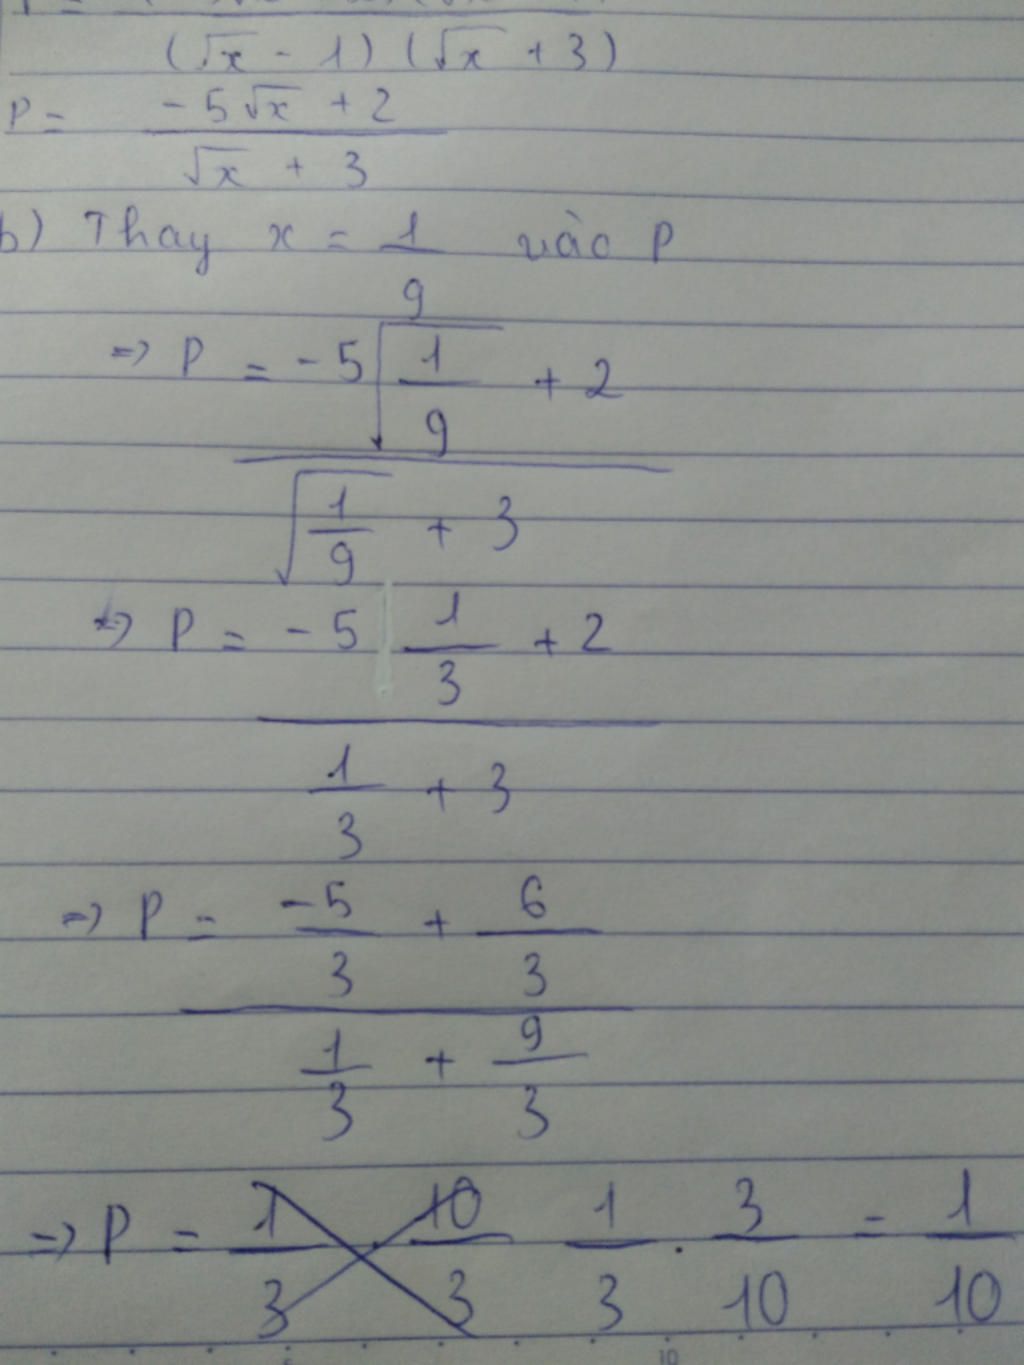 (√x - 1) (√x + 3)
P = (-5√x + 2) / (√x + 3)
b) Thay x = 1/9 vào P
=> P = (-5√(1/9) + 2) / (√(1/9) + 3)
=> P = (-5 1/3 + 2) / (1/3 + 3)
=> P = (-5/3 + 6/3) / (1/3 + 9/3)
=> P = 1/3 . 10/3 1/3 . 3/10 = 1/10